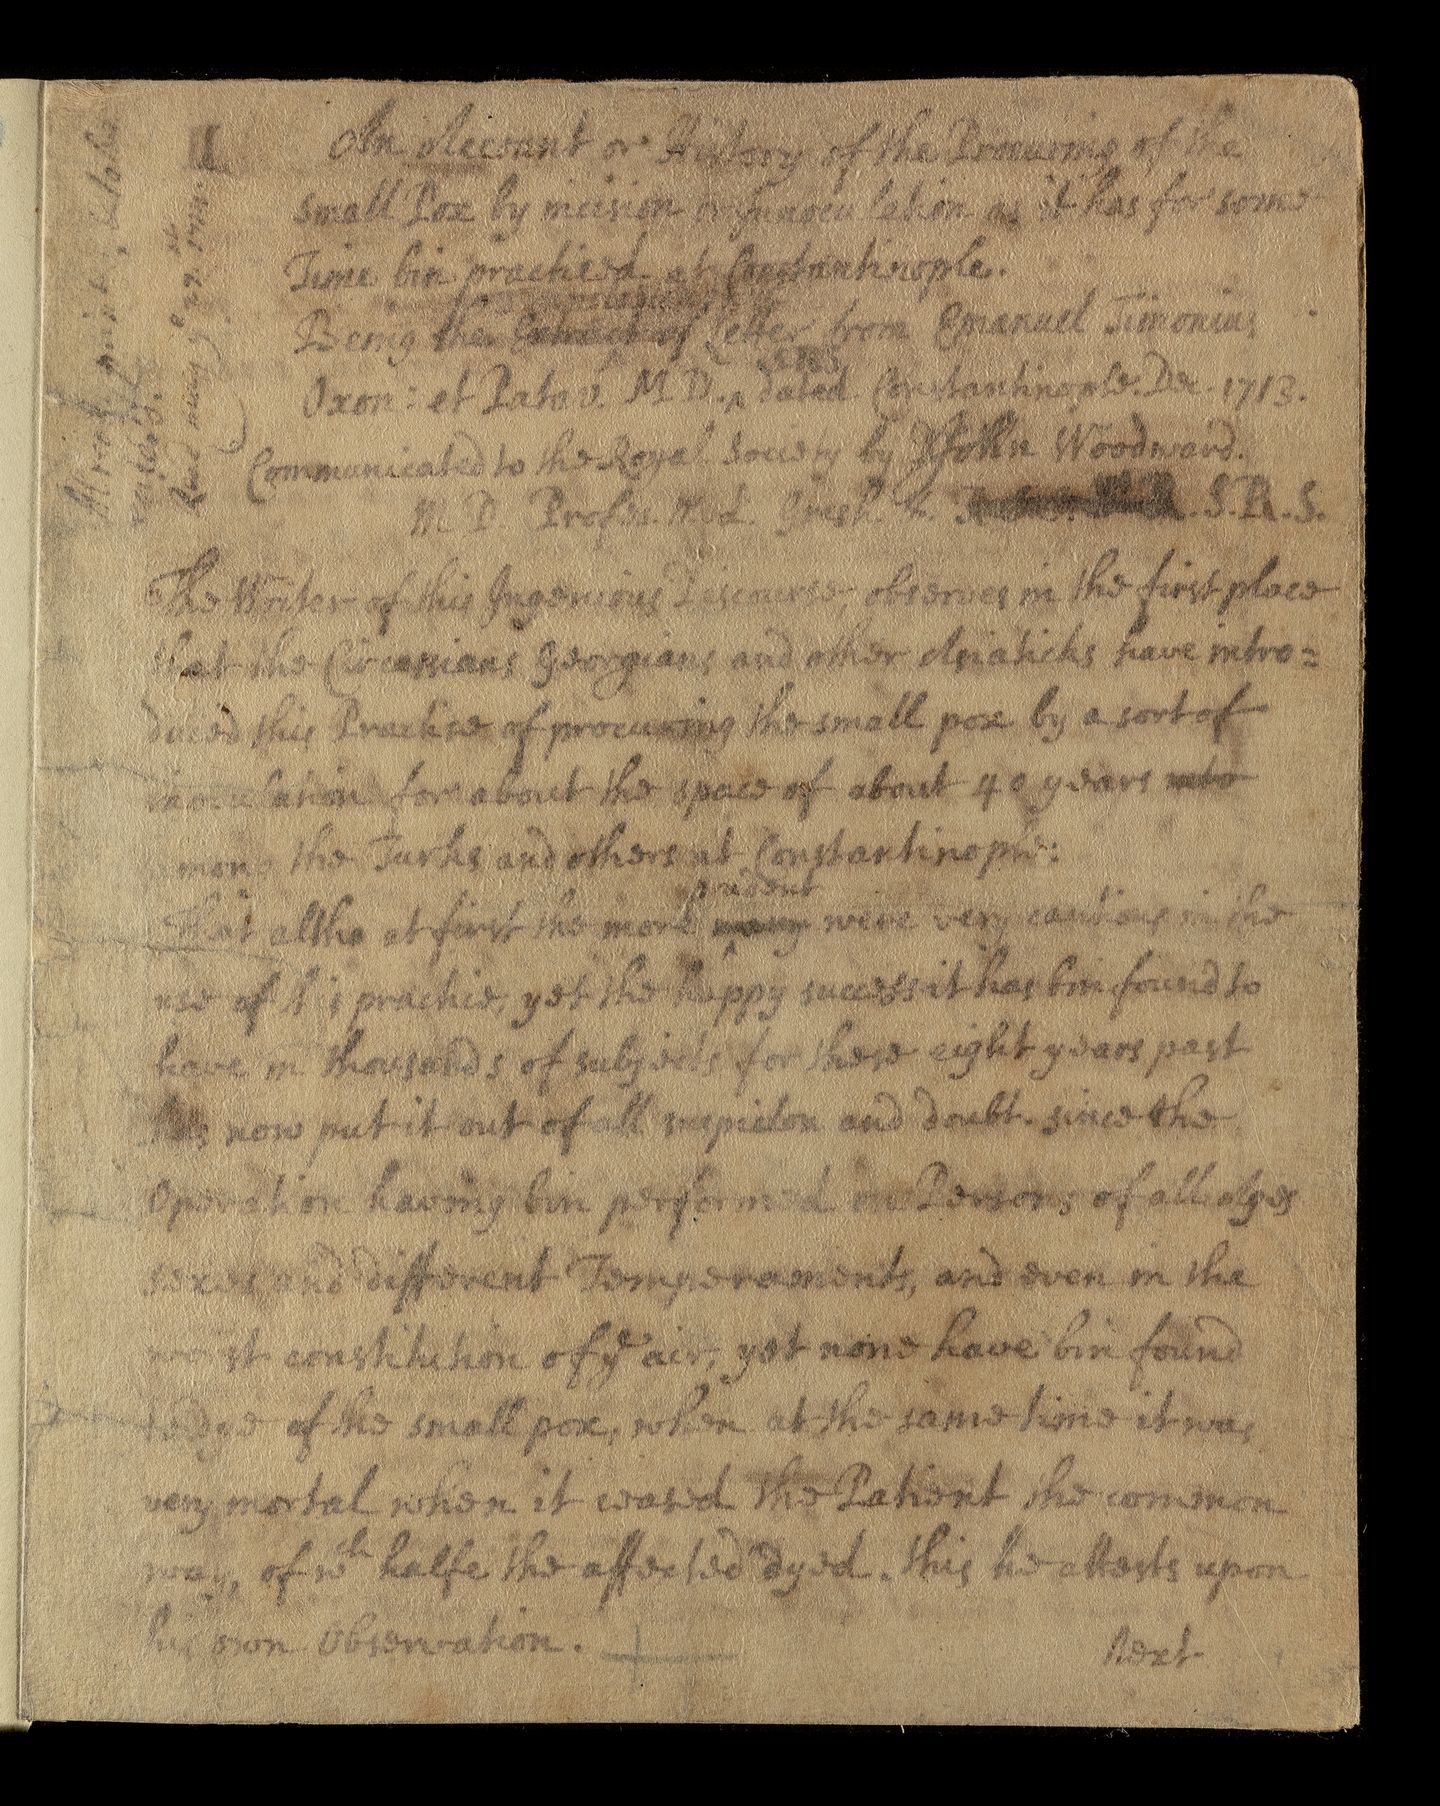 An Account or History of the Procuring of the
small Pox by incision or Innoculation as it has for some
Time bin practised at Constantinople.
Being the Extract of Letter from Emanuel Timonius
Oxon: et Patav. M.D. dated Constantinople Dec. 1713.
Communicated to the Royal Society by John Woodward.
M D. Profes. Med. Gresh. & S.R.S.
The Writer of this Ingenious Discourse, observes in the first place
that the Circassians Georgians and other Asiaticks have intro=
duced this Practise of procuring the small pox by a sort of
inoculation for about the space of about 40 years
among the Turks and others at Constantinople:
prudent
That altho at first the more were very cautious in the
use of this practice, yet the happy success it has bin found to
have in thousands of subjects for these eight years past
has now put it out of all suspicion and doubt. since the
Operation having bin performed on Persons of all Ages
sexes and different Temperaments, and even in the
worst constitution of yᵉ air, yet none have bin found
to dye of the small pox, when at the same time it was
very mortal when it ceased the Patient the common
way, of wᶜʰ halfe the affected dyed. this he attests upon
his own Observation.
Next
Already printed
Read may yᵉ 27